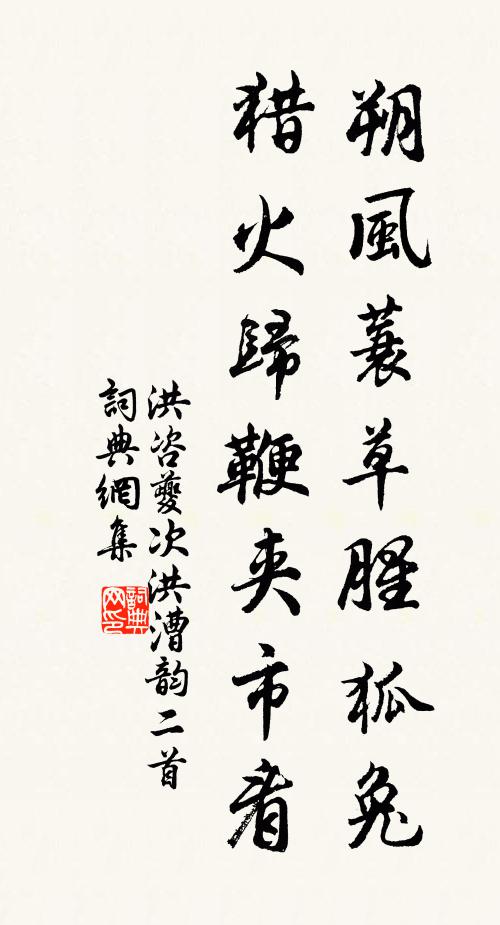 朔風蓑草腥狐兔
猎火歸鞭夾市看
洪咨夔次洪漕韵二首
詞典網集
詞典网印